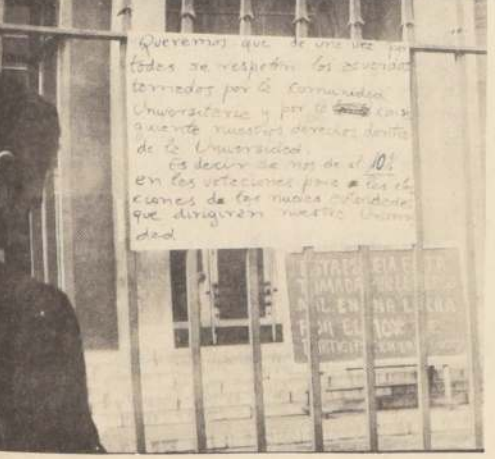 Queremos que de una vez por
todas se respeten los acuerdos
tomados por la Comunidad
Universitaria y por lo consi
guiente nuestros derechos dentro
de la Universidad.
Es decir se nos de el 10%
en las votaciones para las ele
cciones de las nuevas autoridades
que dirigiran nuestra Univer
sidad
ESTA ESCUELA ESTA
TOMADA POR LOS
EN UNA LUCHA
POR EL 10% DE
PARTICIPACION EN